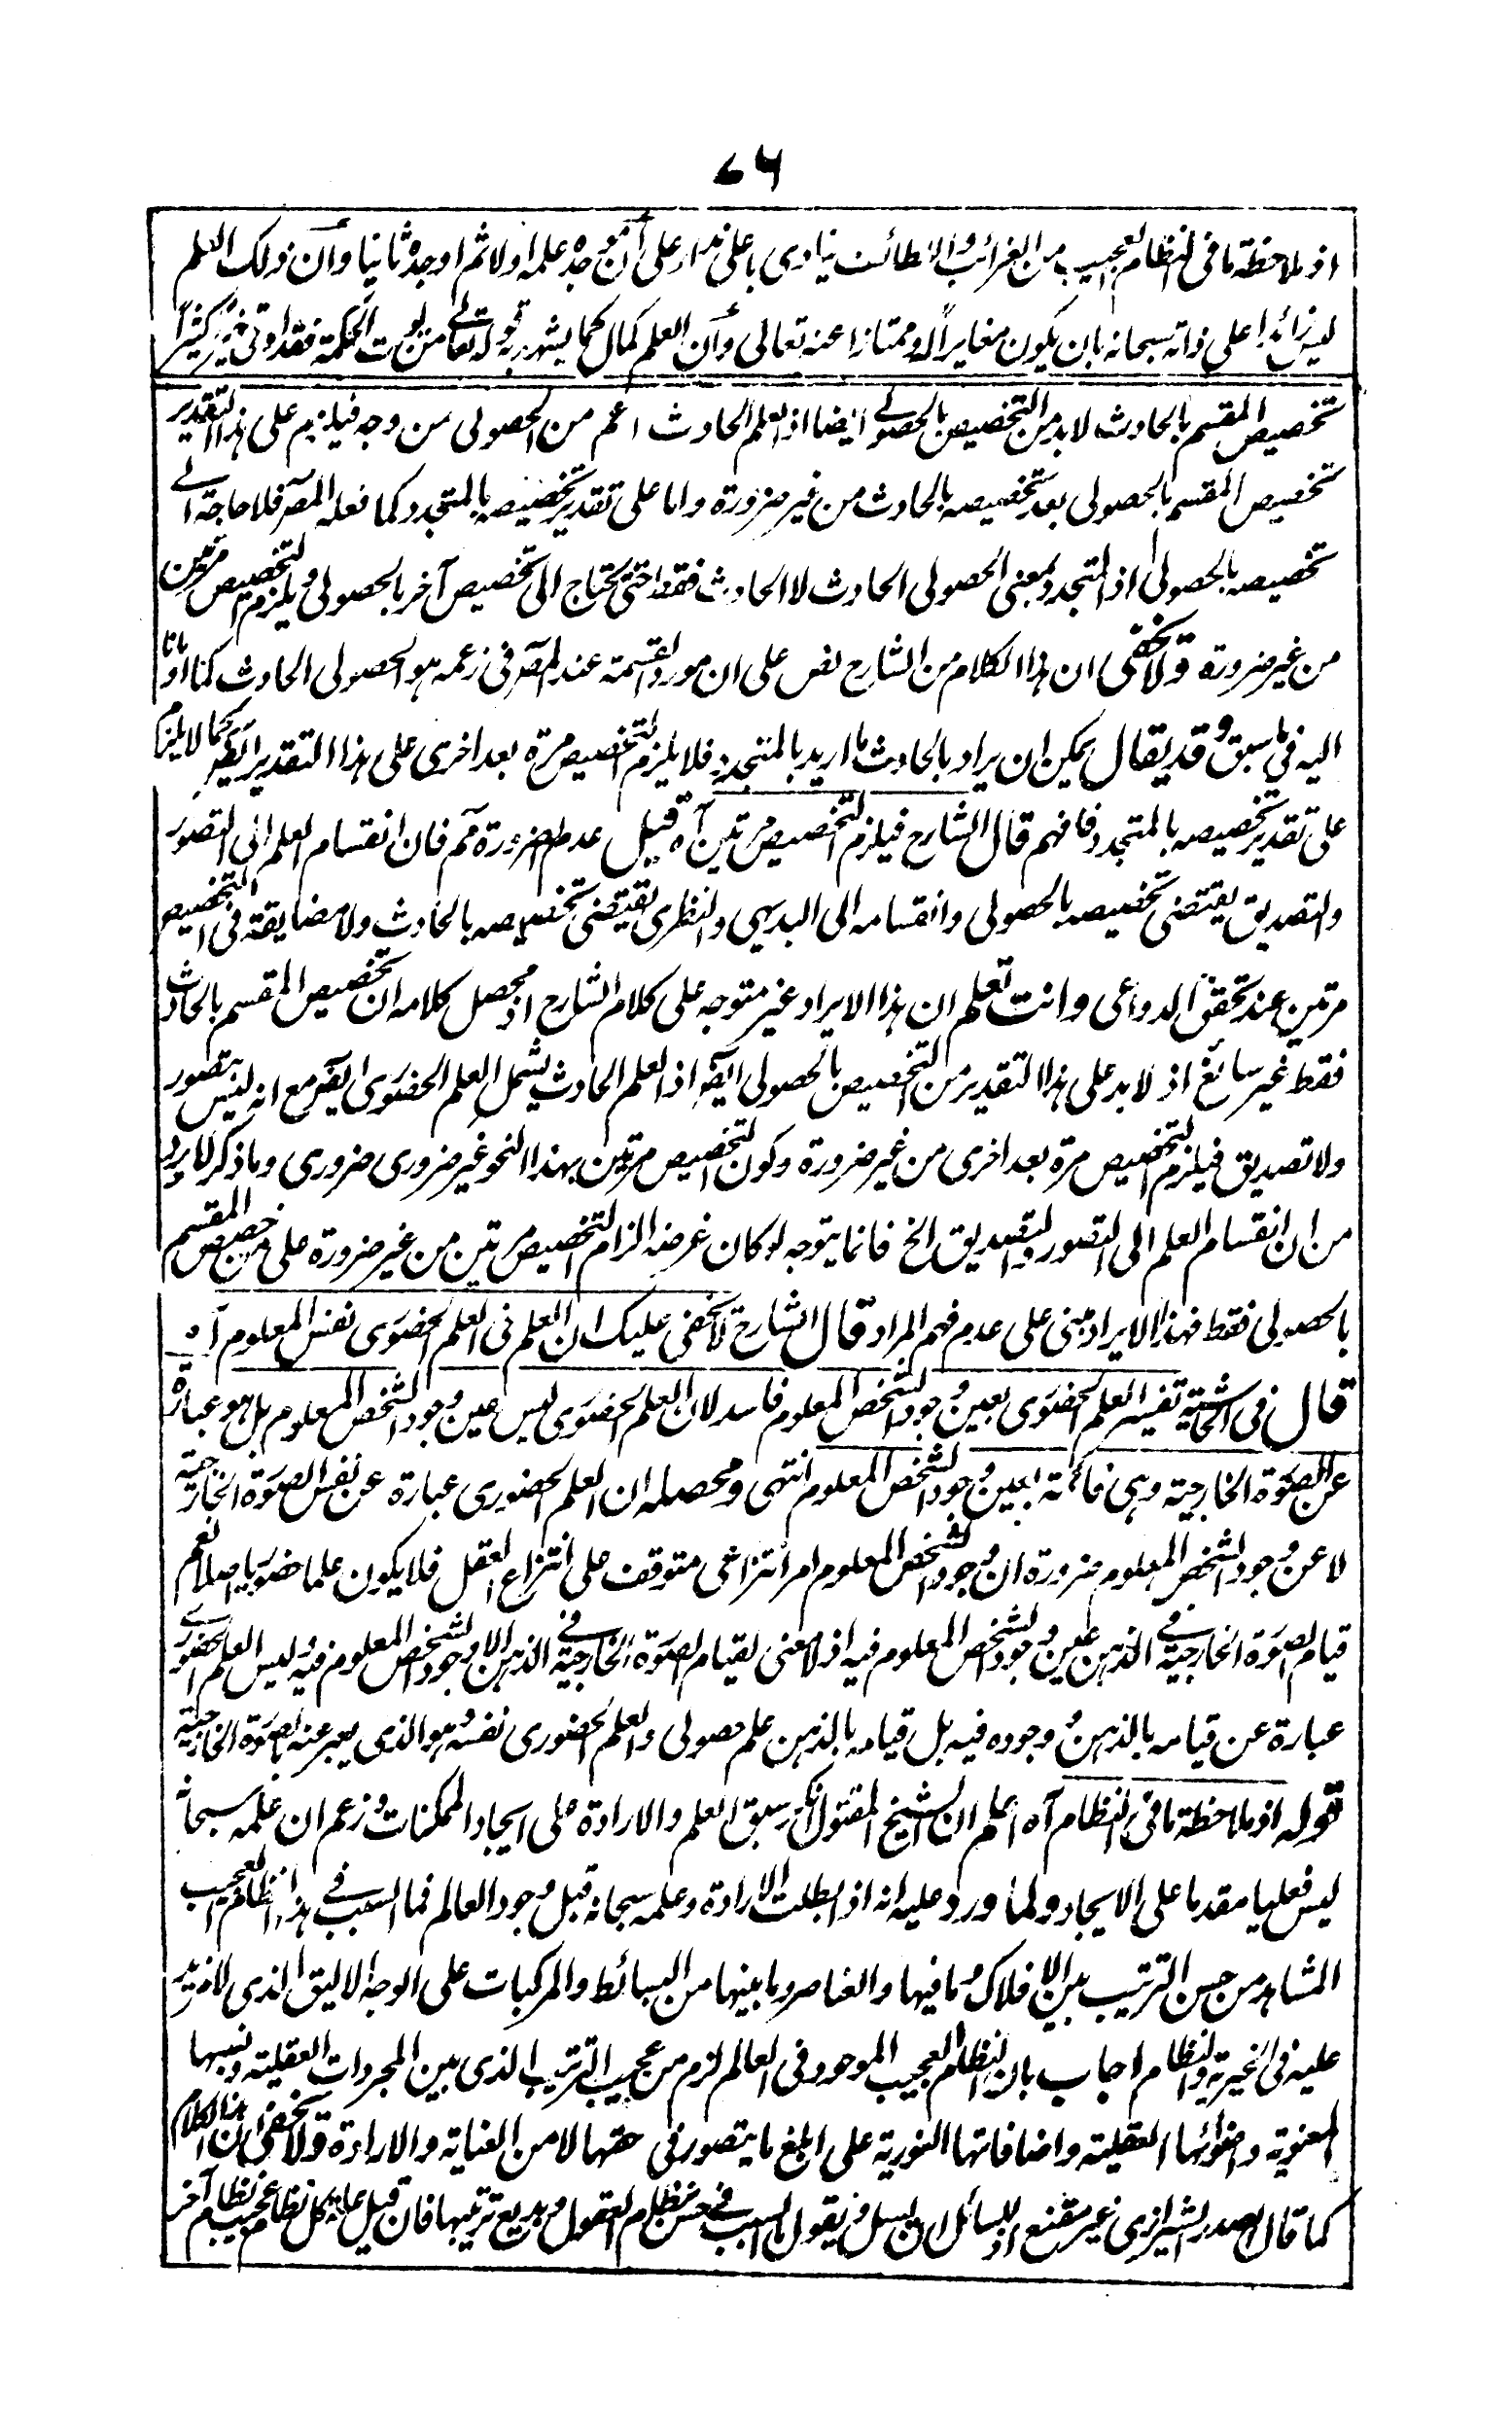 ٧٦
اذ ملاحظة ما فى النظام العجيب من الغرائب واللطائف ينادى باعلى نداء على أن موجده علمه اولا ثم اوجده ثانيا وأن ذلك العلم
ليس زائدا على ذاته سبحانه بان يكون مغايراً له وممتازا عنه تعالى وأن العلم كمال كما يشهد به قوله تعالى من يوت الحكمة فقد اوتى خيرا كثيراً
تخصيص المقسم بالحادث لابد من التخصيص بالحصولے ايضا اذ العلم الحادث اعم من الحصولى من وجه فيلزم على هذا التقدير
تخصيص المقسم بالحصولى بعد تخصيصه بالحادث من غير ضرورة واما على تقدير تخصيصه بالمتجدد كما فعله المصر فلا حاجة الے
تخصيصه بالحصولى اذ المتجدد بمعنى الحصولى الحادث لا الحادث فقط حتى يحتاج الى تخصيص آخر بالحصولى ويلزم التخصيص مرتين
من غير ضرورة ولا يخفى ان هذا الكلام من الشارح نص على ان مورد القسمة عند المصر فى زعمه هو الحصولى الحادث كما اومأنا
اليه فى ما سبق وقد يقال يمكن ان يراد بالحادث ما اريد بالمتجدد فلا يلزم التخصيص مرة بعد اخرى على هذا التقدير ايضا كما لا يلزم
على تقدير تخصيصه بالمتجدد فافهم قال الشارح فيلزم التخصيص مرتين آه قيل عدم الضرورة مم فان انقسام العلم الى التصور
والتصديق يقتضى تخصيصه بالحصولى وانقسامه الى البديهى والنظرى يقتضى تخصيصه بالحادث ولا مضايقة فى التخصيص
مرتين عند تحقق الدواعى وانت تعلم ان هذا الايراد غير متوجه على كلام الشارح اذ محصل كلامه ان تخصيص المقسم بالحادث
فقط غير سائغ اذ لابد على هذا التقدير من التخصيص بالحصولى ايضا اذ العلم الحادث يشمل العلم الحضورى ايضا مع انه ليس بتصور
ولا تصديق فيلزم التخصيص مرة بعد اخرى من غير ضرورة وكون التخصيص مرتين بهذا النحو غير ضرورى ضرورى وما ذكر لا يرد
من ان انقسام العلم الى التصور والتصديق الخ فانما يتوجه لو كان غرضه الزام التخصيص مرتين من غير ضرورة على من خصص المقسم
بالحصولى فقط فهذا الايراد مبنى على عدم فهم المراد قال الشارح لا يخفى عليك ان العلم فى العلم الحضورى نفس المعلوم آه
قال فى الحاشية تفسير العلم الحضورى بعين وجود الشخص المعلوم فاسد لان العلم الحضورى ليس عين وجود الشخص المعلوم بل هو عبارة
عن الصورة الخارجية وهى قائمة بعين وجود الشخص المعلوم انتهى ومحصله ان العلم الحضورى عبارة عن نفس الصورة الخارجية
لا عن وجود الشخص المعلوم ضرورة ان وجود الشخص المعلوم امر انتزاعى متوقف على انتزاع العقل فلا يكون علما حضوريا اصلا نعم
قيام الصورة الخارجية فى الذهن عين وجود الشخص المعلوم فيه اذ لا معنى لقيام الصورة الخارجية فى الذهن الا وجود الشخص المعلوم فيه وليس العلم الحضورے
عبارة عن قيامه بالذهن ووجوده فيه بل قيامه بالذهن علم حصولى والعلم الحضورى نفسه هو الذى يعبر عنه بالصورة الخارجية
قوله اذ ملاحظة ما فى النظام آه اعلم ان الشيخ المقتول انكر سبق العلم والارادة على ايجاد الممكنات وزعم ان علمه سبحانه
ليس فعليا مقدما على الايجاد ولما ورد عليه انه اذ ابطلت الارادة وعلمه سبحانه قبل وجود العالم فما السبب فے هذا النظام العجيب
المشاهد من حسن الترتيب بين الافلاك وما فيها والعناصر وما بينها من البسائط والمركبات على الوجه الاليق الذى لا مزيد
عليه فى الخيرية والنظام اجاب بان النظام العجيب الموجود فى العالم لزم من عجيب الترتيب الذى بين المجردات العقلية ونسبها
المعنوية واضوائها العقلية واضافاتها النورية على ابلغ ما يتصور فى حقها لا من العناية والارادة ولا يخفى ان هذا الكلام
كما قال الصدر الشيرازى غير مقنع اذ للسائل ان يسأل ويقول ما السبب فے حسن نظام العقول وبديع ترتيبها فان قيل علة كل نظام عجيب نظام آخر